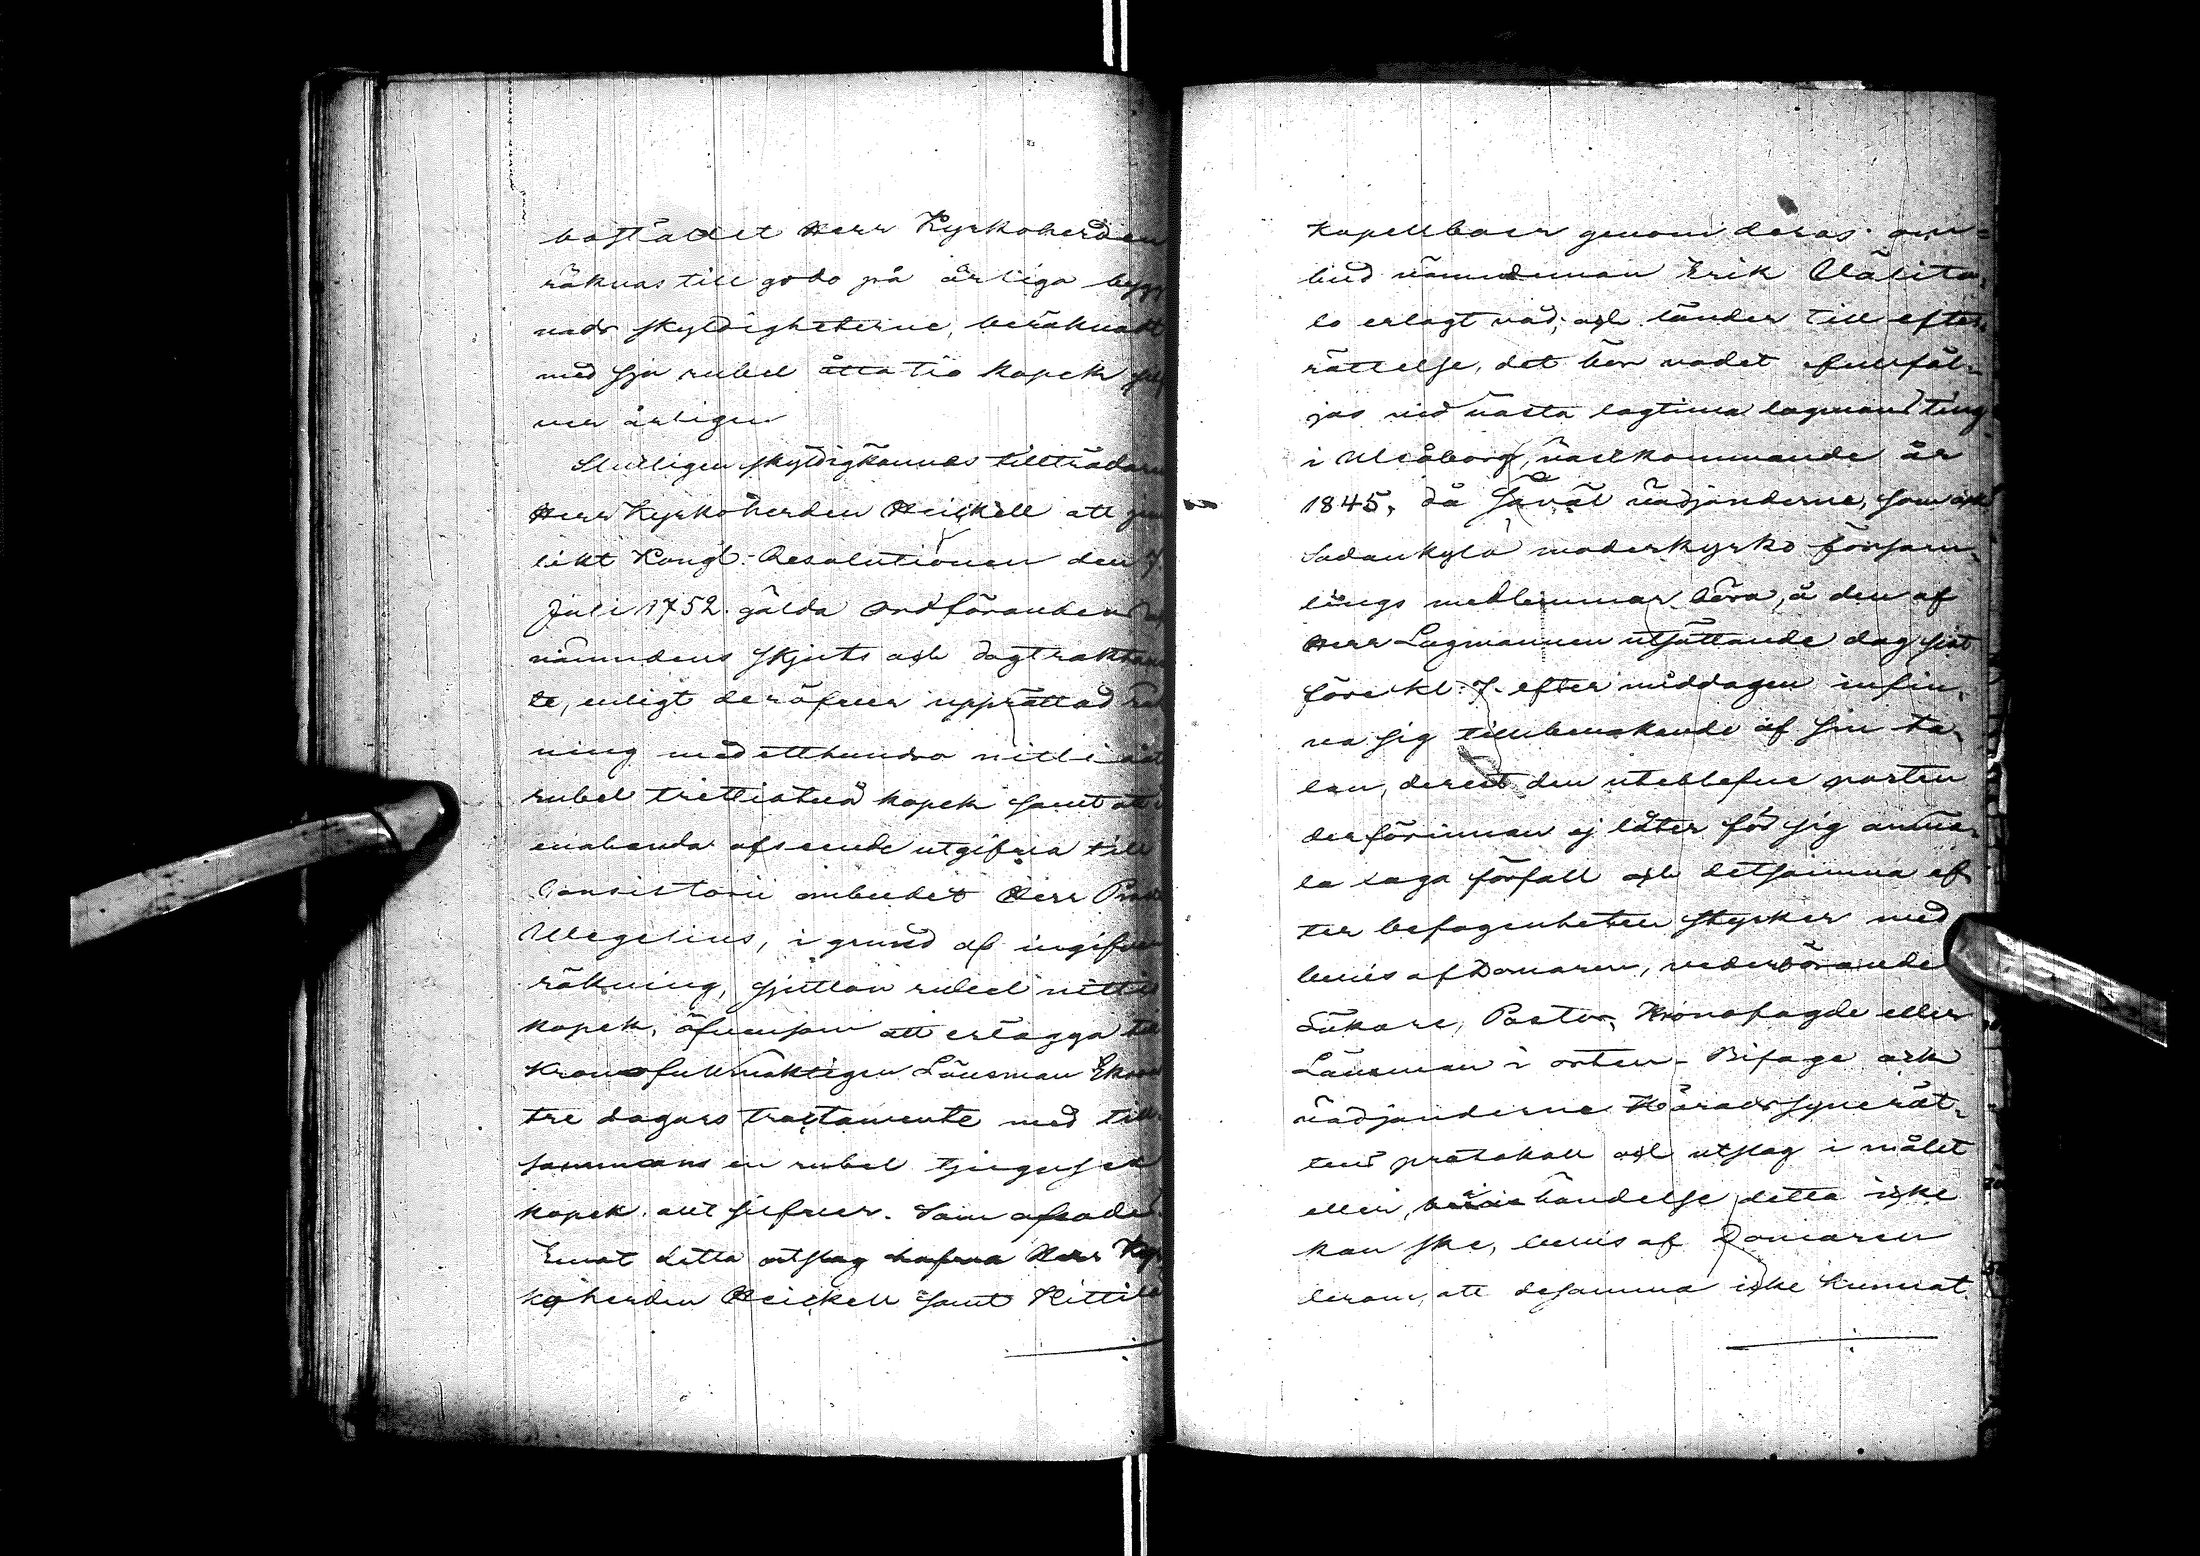 bostället Herr Kyrkoherden
räknas till godo på årliga bygg
nads skyldigheterne, beräknadt
med sju rubel åttatio kopek silf
ver årligen
Slutligen skyldigkännes tillträdaren
Herr Kyrkoherden Heickell att
likt Kongl. Resolutionen den 7
Juli 1752 gälda Ordförandens
nämndens skjuts och dagtraktamen
te, enligt deröfver upprättad räk
ning med etthundra nitti
rubel trettiotvå kopek samt att i
enahanda afseende utgifva till
Consistorii ombudet Herr
Wegelius, i grund af ingifven
räkning, sjutton rubel nittio
kopek, äfvensom att erlägga till
Kronofullmäktigen Länsman
tre dagars tractamente med till
sammans en rubel tjugusex
kopek allt silfver. Som afsades.
Emot detta utslag hafva Herr Kyr
koherden Heickell samt Kittilä
Kapellboer genom deras om=
bud nämndeman Erik Wälita
lo erlagt vad; och länder till efter
rättelse, det bör vadet fullföl=
jas vid nästa lagtima lagmans ting
i Uleåborg, nästkommande år
1845, då såväl vädjanderne, som ock
Sodankylä moderkyrko försam
lings medlemmar böra, å den af
Herr Lagmannen utsättande dag sist
före kl: 7 efter middagen infin
na sig till bevakande af sin ta
lan, derest den uteblefne parten
derförinnan ej låter för sig anmä
la laga förfall och detsamma ef
ter befogenheten styrker med
bevis af Domaren, vederbörande
Läkare, Pastor, Kronofogde eller
Länsman i orten. Bifoge ock
vädjanderne Häradssynerät=
tens protokoll och utslag i målet
eller, i händelse detta icke
kan ske, bevis af Domaren
derom, att desamma icke kunnat